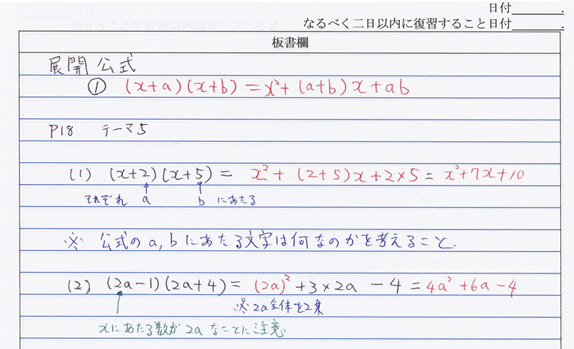 日付＿＿＿＿.
なるべく二日以内に復習すること日付＿＿＿＿.
板書欄
展開公式
① (x+a)(x+b) = x²+(a+b)x+ab
P18 テーマ5
(1) (x+2)(x+5) = x²+(2+5)x+2×5 = x²+7x+10
それぞれ a bにあたる
※ 公式のa,bにあたる文字は何なのかを考えること.
(2) (2a-1)(2a+4) = (2a)²+3×2a -4 = 4a²+6a-4
※2a全体を2乗
xにあたる数が2aなことに注意